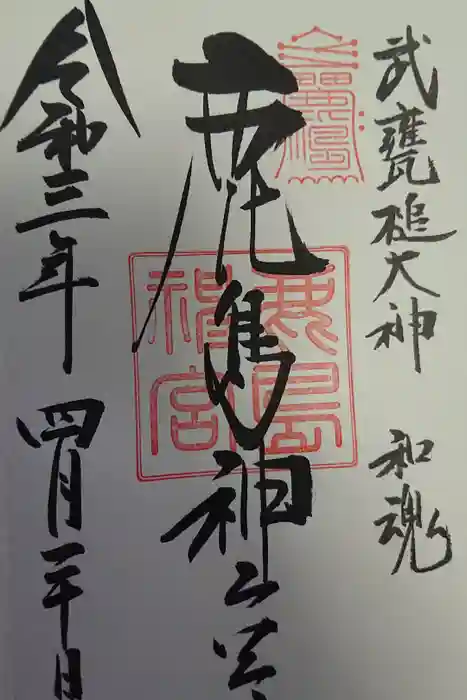 武甕槌大神 和魂
鹿島神宮
令和三年 四月二十日
鹿島神宮